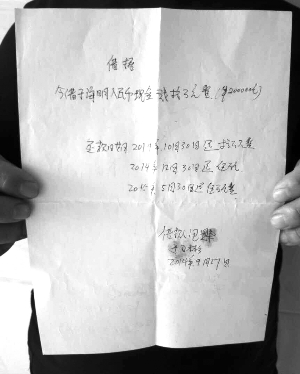 借据
今借于海明人民币现金贰拾万元整(¥200000元)
还款日期2014年10月30日还拾万元整
2014年12月30日还伍万
2015年5月30日还伍万元整
借款人
2014年9月17日